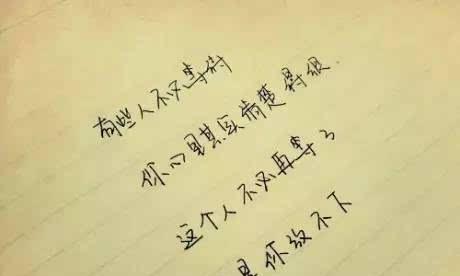 有些人不必等待
你心里其实清楚得很.
这个人不必再等了
是你放不下